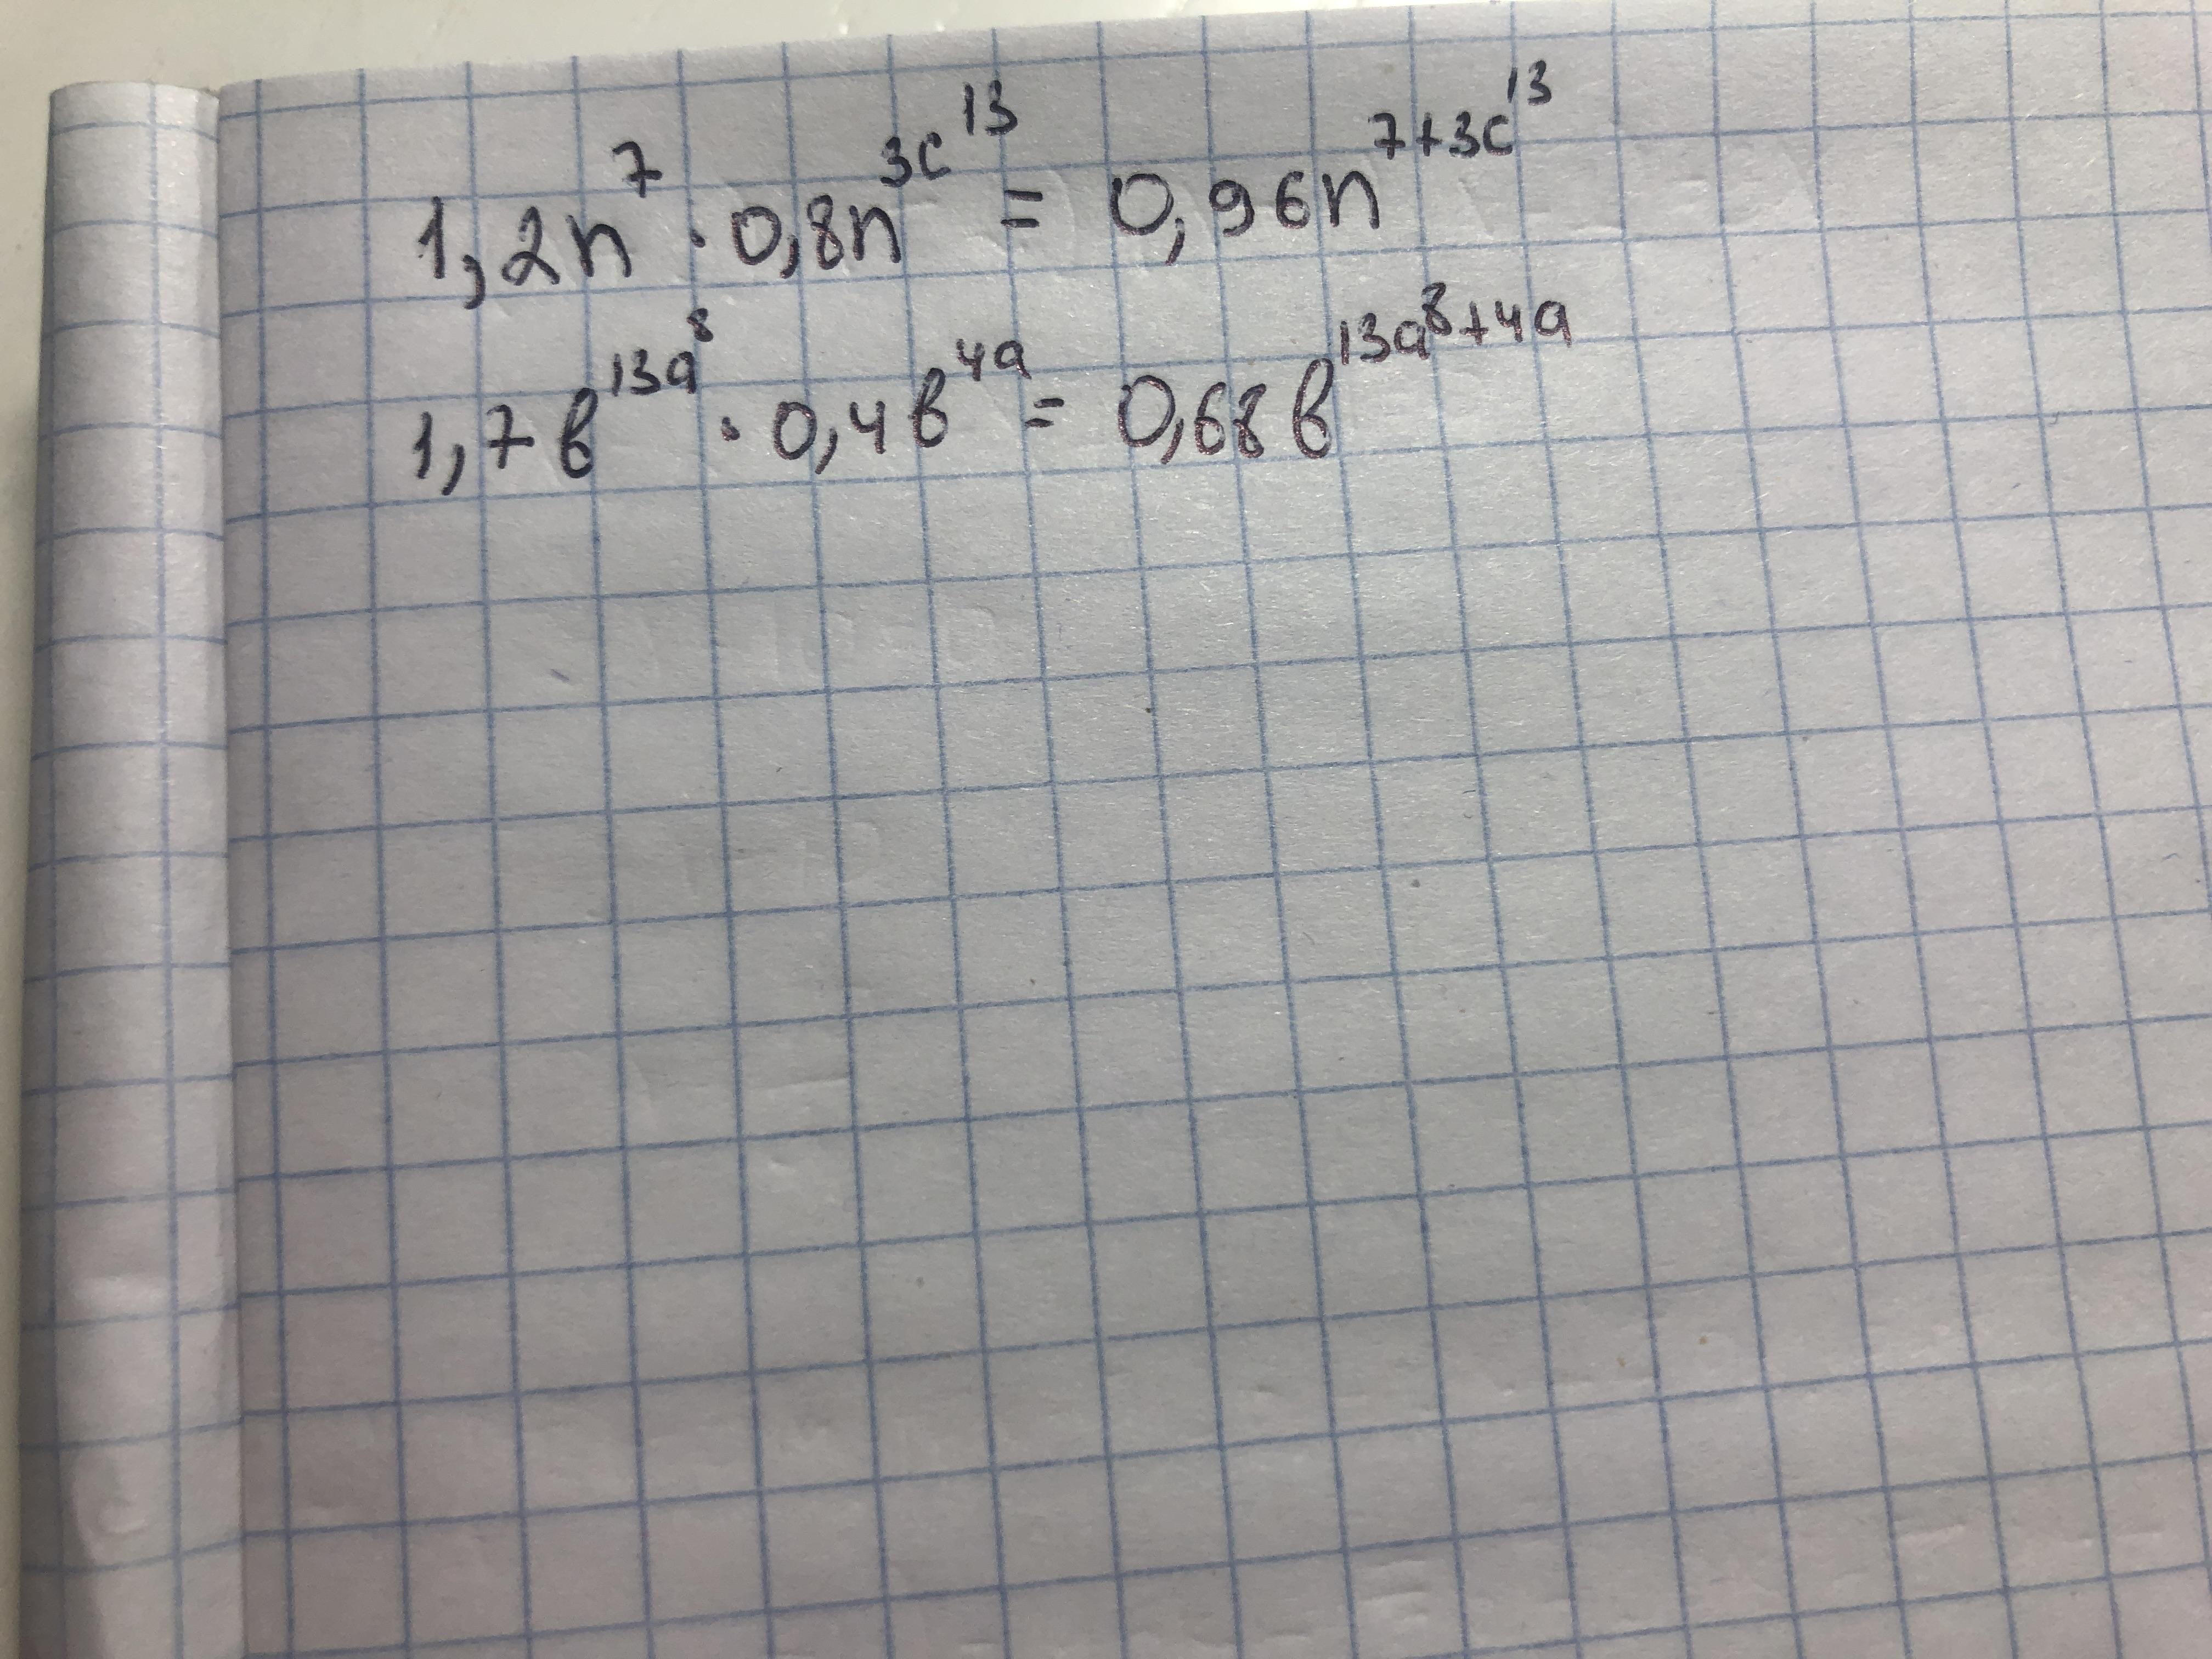 1,2n^7 · 0,8n^{3c^{13}} = 0,96n^{7+3c^{13}}
1,7в^{13a^8} · 0,4в^{4a} = 0,68в^{13a^8+4a}